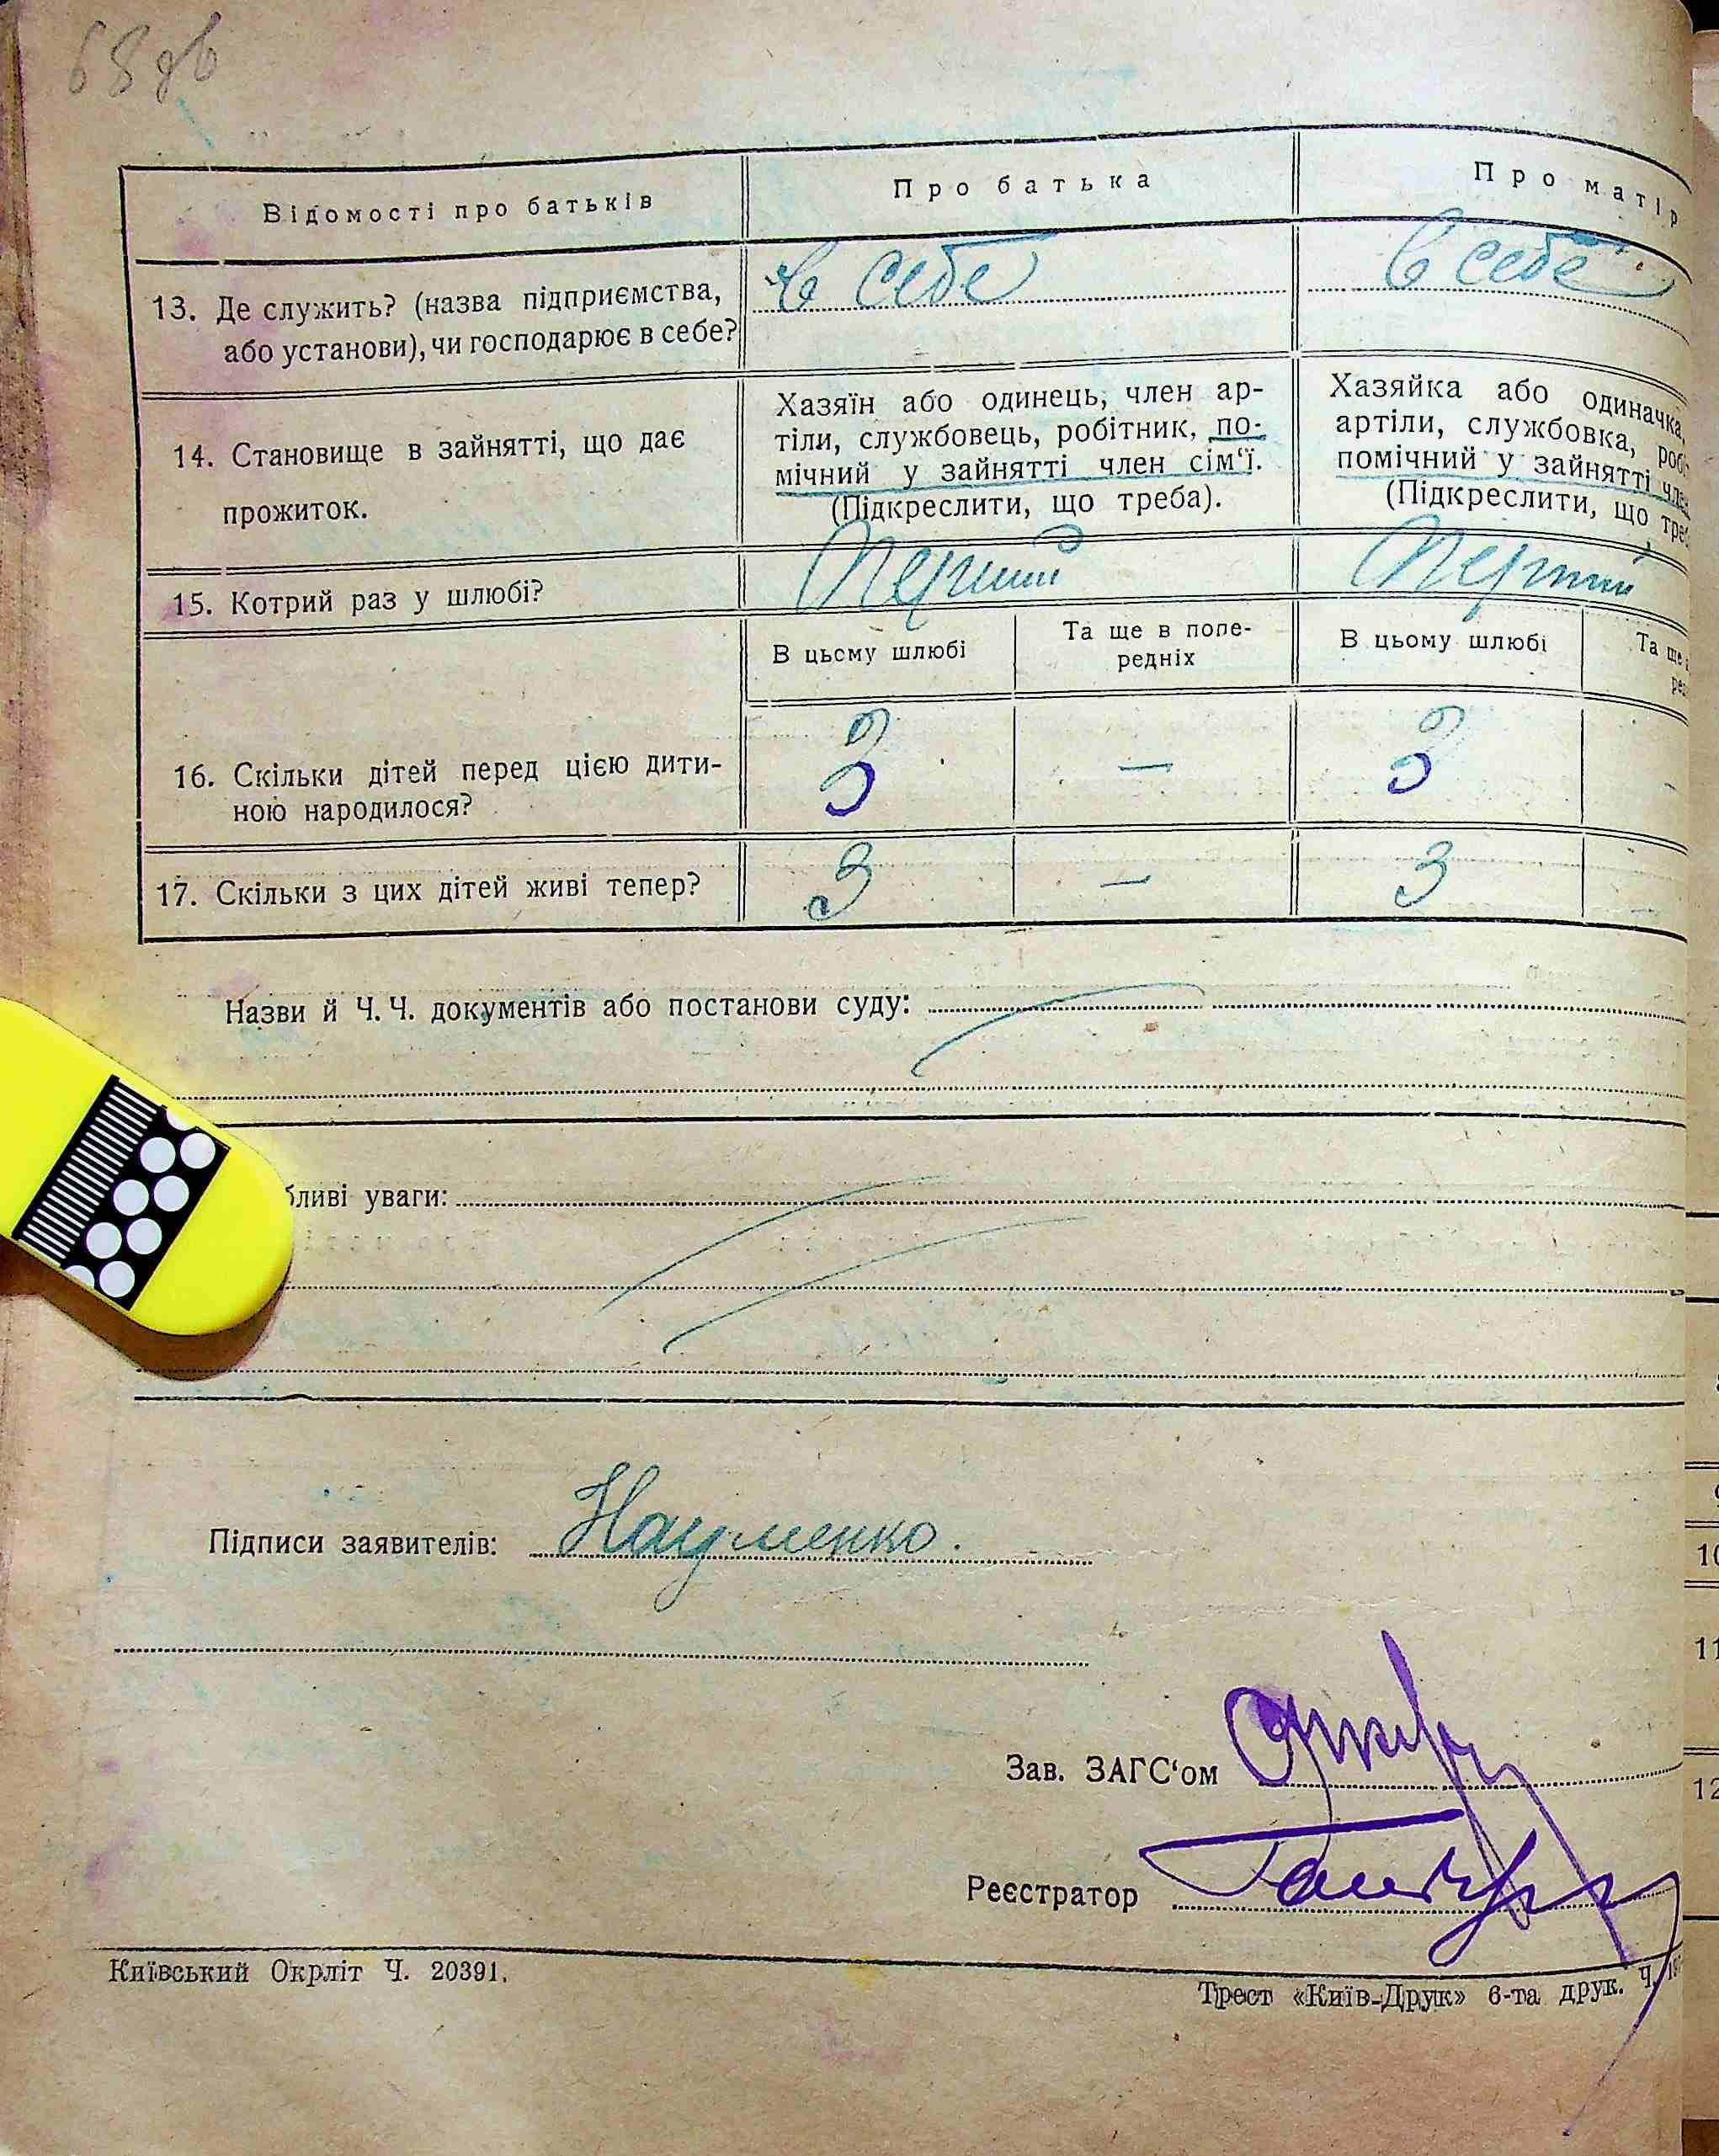 68 зв
Відомості про батьків
Про батька
Про матір
13. Де служить? (назва підприємства,
або установи), чи господарює в себе?
в себе
в себе
14. Становище в зайнятті, що дає
прожиток.
Хазяїн або одинець, член ар-
тіли, службовець, робітник, по-
мічний у зайнятті член сім‘ї.
(Підкреслити, що треба).
Хазяйка або одиначка,
артіли, службовка, роб
помічний у зайнятті чле
(Підкреслити, що треб
15. Котрий раз у шлюбі?
Перший
Перший
В цьому шлюбі
Та ще в попе-
редніх
В цьому шлюбі
Та ще
16. Скільки дітей перед цією дити-
ною народилося?
3 — 3 -
17. Скільки з цих дітей живі тепер?
3 — 3 —
Назви й Ч. Ч. документів або постанови суду:
бливі уваги:
Підписи заявителів: Науменко.
Зав. ЗАГС‘ом
Реєстратор
Київський Окрліт Ч. 20391.
Трест «Київ-Друк» 6-та друк. Ч.
10
11
12